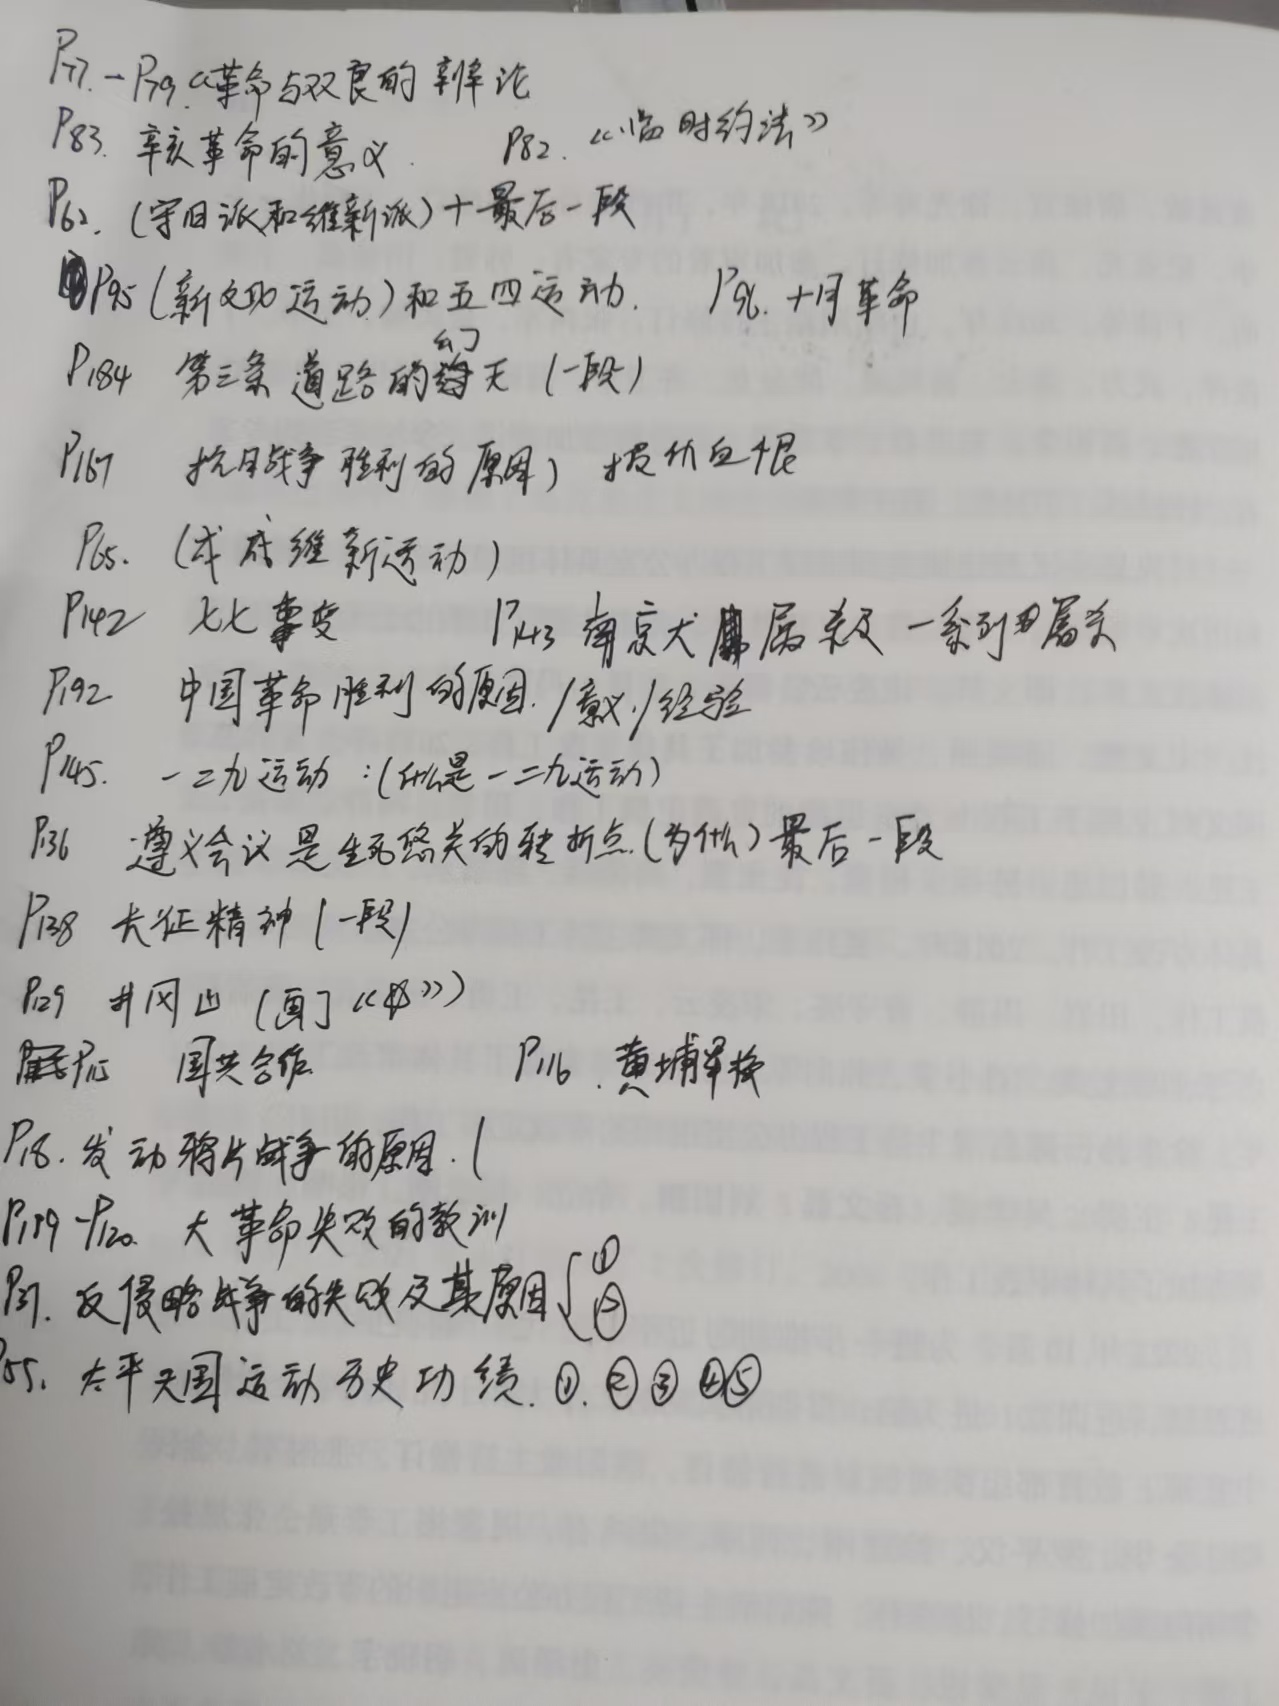 P77.-P79.“革命与双良的辩论
P83. 辛亥革命的意义. P82. 《临时约法》
P62. (守旧派和维新派)+最后一段
P95(新文化运动)和五四运动. P96. 十月革命
幻
P184 第三条道路的灭(一段)
P167 抗日战争胜利的原因)
P65. (戊戌维新运动)
P142 七七事变 P143 南京大屠杀 一系列屠杀
P192 中国革命胜利的原因./意义./经验
P145. 一二九运动:(什么是一二九运动)
P136 遵义会议是生死悠关的转折点.(为什么)最后一段
P138 长征精神(一段)
P129 井冈山(画了《》)
P115 国共合作 P116.黄埔军校
P18.发动鸦片战争的原因.(
P119-P120. 大革命失败的教训
P37.反侵略战争的失败及其原因{①
②
P55.太平天国运动历史功绩.①.②③④⑤